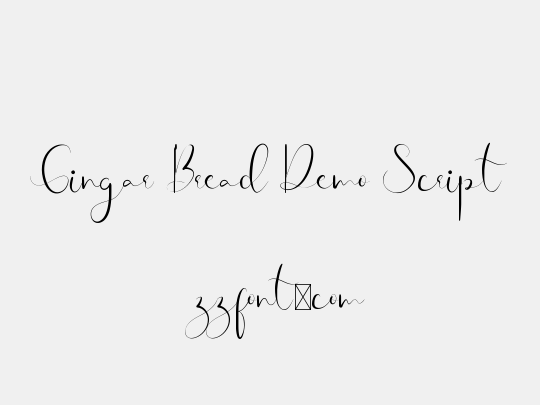 Gingar Bread Demo Script
zzfont☒com